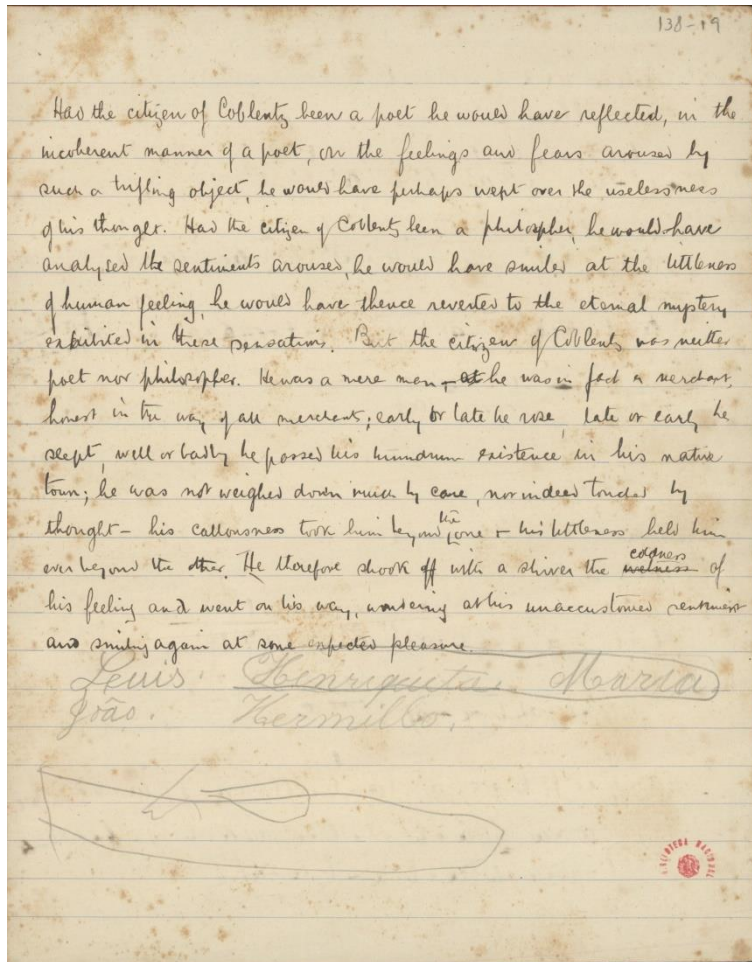 138-19
Had the citizen of Coblentz been a poet he would have reflected, in the
incoherent manner of a poet, on the feelings and fears aroused by
such a trifling object, he would have perhaps wept over the uselessness
of his thought. Had the citizen of Coblentz been a philospher, he would have
analysed the sentiments aroused, he would have smiled at the littleness
of human feeling, he would have thence reverted to the eternal mystery
exhibited in these sensations. But the citizen of Coblentz was neither
poet nor philosopher. He was a mere man, he was in fact a merchant,
honest in the way of all merchants; early or late he rose, late or early he
slept, well or badly he passed his humdrum existence in his native
town; he was not weighed down much by care, nor indeed touched by
thought — his callousness took him beyond the one & his littleness held him
ever beyond the other. He therefore shook off with a shiver the wetness coldness of
his feeling and went on his way, wondering at his unaccustomed sentiment
and smiling again at some expected pleasure.
Henriqueta. Maria
João. Hermillo.
BIBLIOTECA NACIONAL